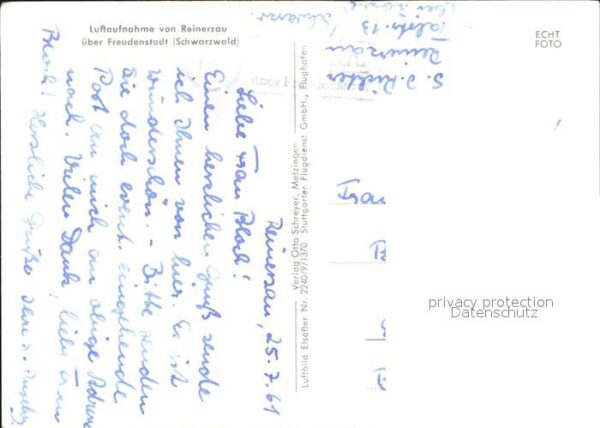 Luftaufnahme von Reinerzau
über Freudenstadt (Schwarzwald)
ECHT
FOTO
Reinerzau, 25.7.61
Liebe Frau Bloch!
Einen herzlichen Gruß sende
ich Ihnen von hier. Es ist
wunderschön. - Bitte senden
Sie doch event. eingehende
Post an mich an obige Adresse
nach. Vielen Dank, liebe Frau
Bloch! Herzliche Grüße Ihre
Verlag Otto Schreyer, Metzingen
Luftbild Elsäßer Nr. 224D/9/1370 Stuttgarter Flugdienst GmbH., Flughafen
Reinerzau
Talstr. 13
privacy protection
Datenschutz